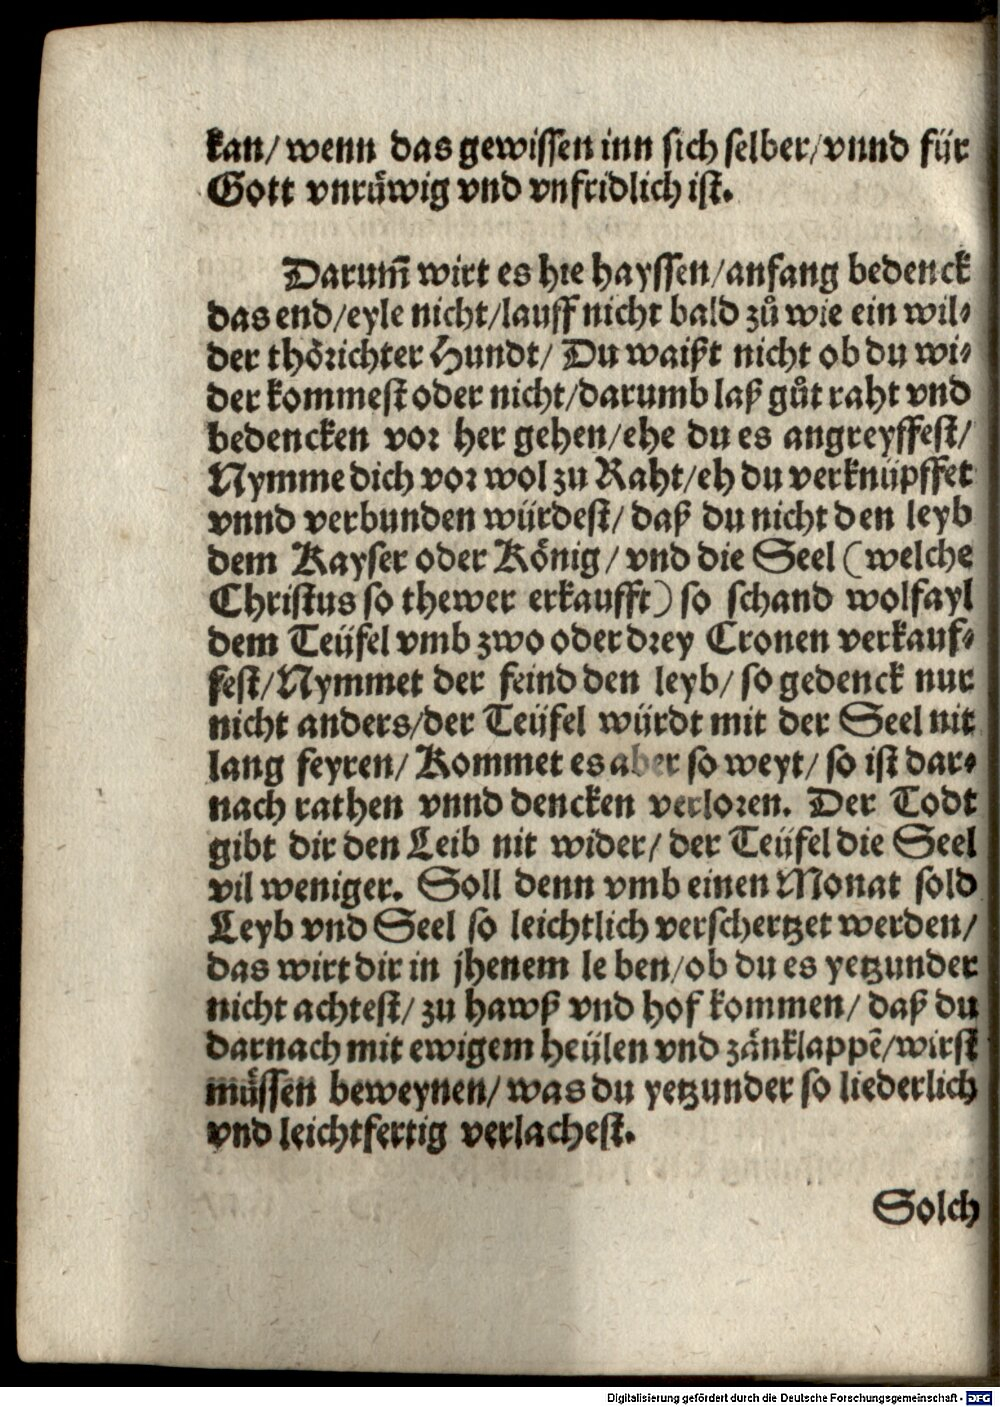 kan/ wenn das gewissen inn sich selber/ vnnd für
Gott vnrüwig vnd vnfridlich ist.
Darum̃ wirt es hie hayssen/ anfang bedenck
das end/ eyle nicht/ lauff nicht bald zů wie ein wil⸗
der thörichter Hundt/ Du waißt nicht ob du wi⸗
der kommest oder nicht/ darumb laß gůt raht vnd
bedencken vor her gehen/ ehe du es angreyffest/
Nymme dich vor wol zu Raht/ eh du verknüpffet
vnnd verbunden würdest/ daß du nicht den leyb
dem Kayser oder König/ vnd die Seel (welche
Christus so thewer erkaufft) so schand wolfayl
dem Teüfel vmb zwo oder drey Cronen verkauf⸗
fest/ Nymmet der feind den leyb/ so gedenck nur
nicht anders/ der Teüfel würdt mit der Seel nit
lang feyren/ Kommet es aber so weyt/ so ist dar⸗
nach rathen vnnd dencken verloren. Der Todt
gibt dir den Leib nit wider/ der Teüfel die Seel
vil weniger. Soll denn vmb einen Monat sold
Leyb vnd Seel so leichtlich verschertzet werden/
das wirt dir in jhenem le ben/ ob du es yetzunder
nicht achtest/ zu hawß vnd hof kommen/ daß du
darnach mit ewigem heülen vnd zänklappẽ/ wirst
müssen beweynen/ was du yetzunder so liederlich
vnd leichtfertig verlachest.
Solch
Digitalisierung gefördert durch die Deutsche Forschungsgemeinschaft - DFG